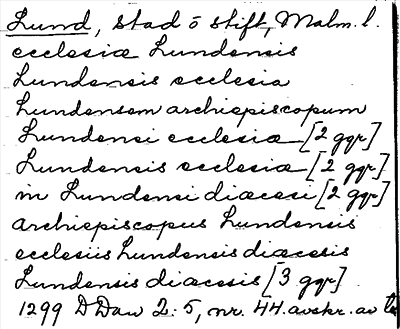 Lund, stad o stift, Malm. l.
ecclesiæ Lundensis
Lundensis ecclesia
Lundensem archiepiscopum
Lundensi ecclesiæ [2 ggr]
Lundensis ecclesiæ [2 ggr]
in Lundensi diæcesi [2 ggr]
archiepiscopus Lundensis
ecclesiis Lundensis diæcesis
Lundensis diæcesis [3 ggr]
1299 DDan 2:5, nr. 44. avskr. av